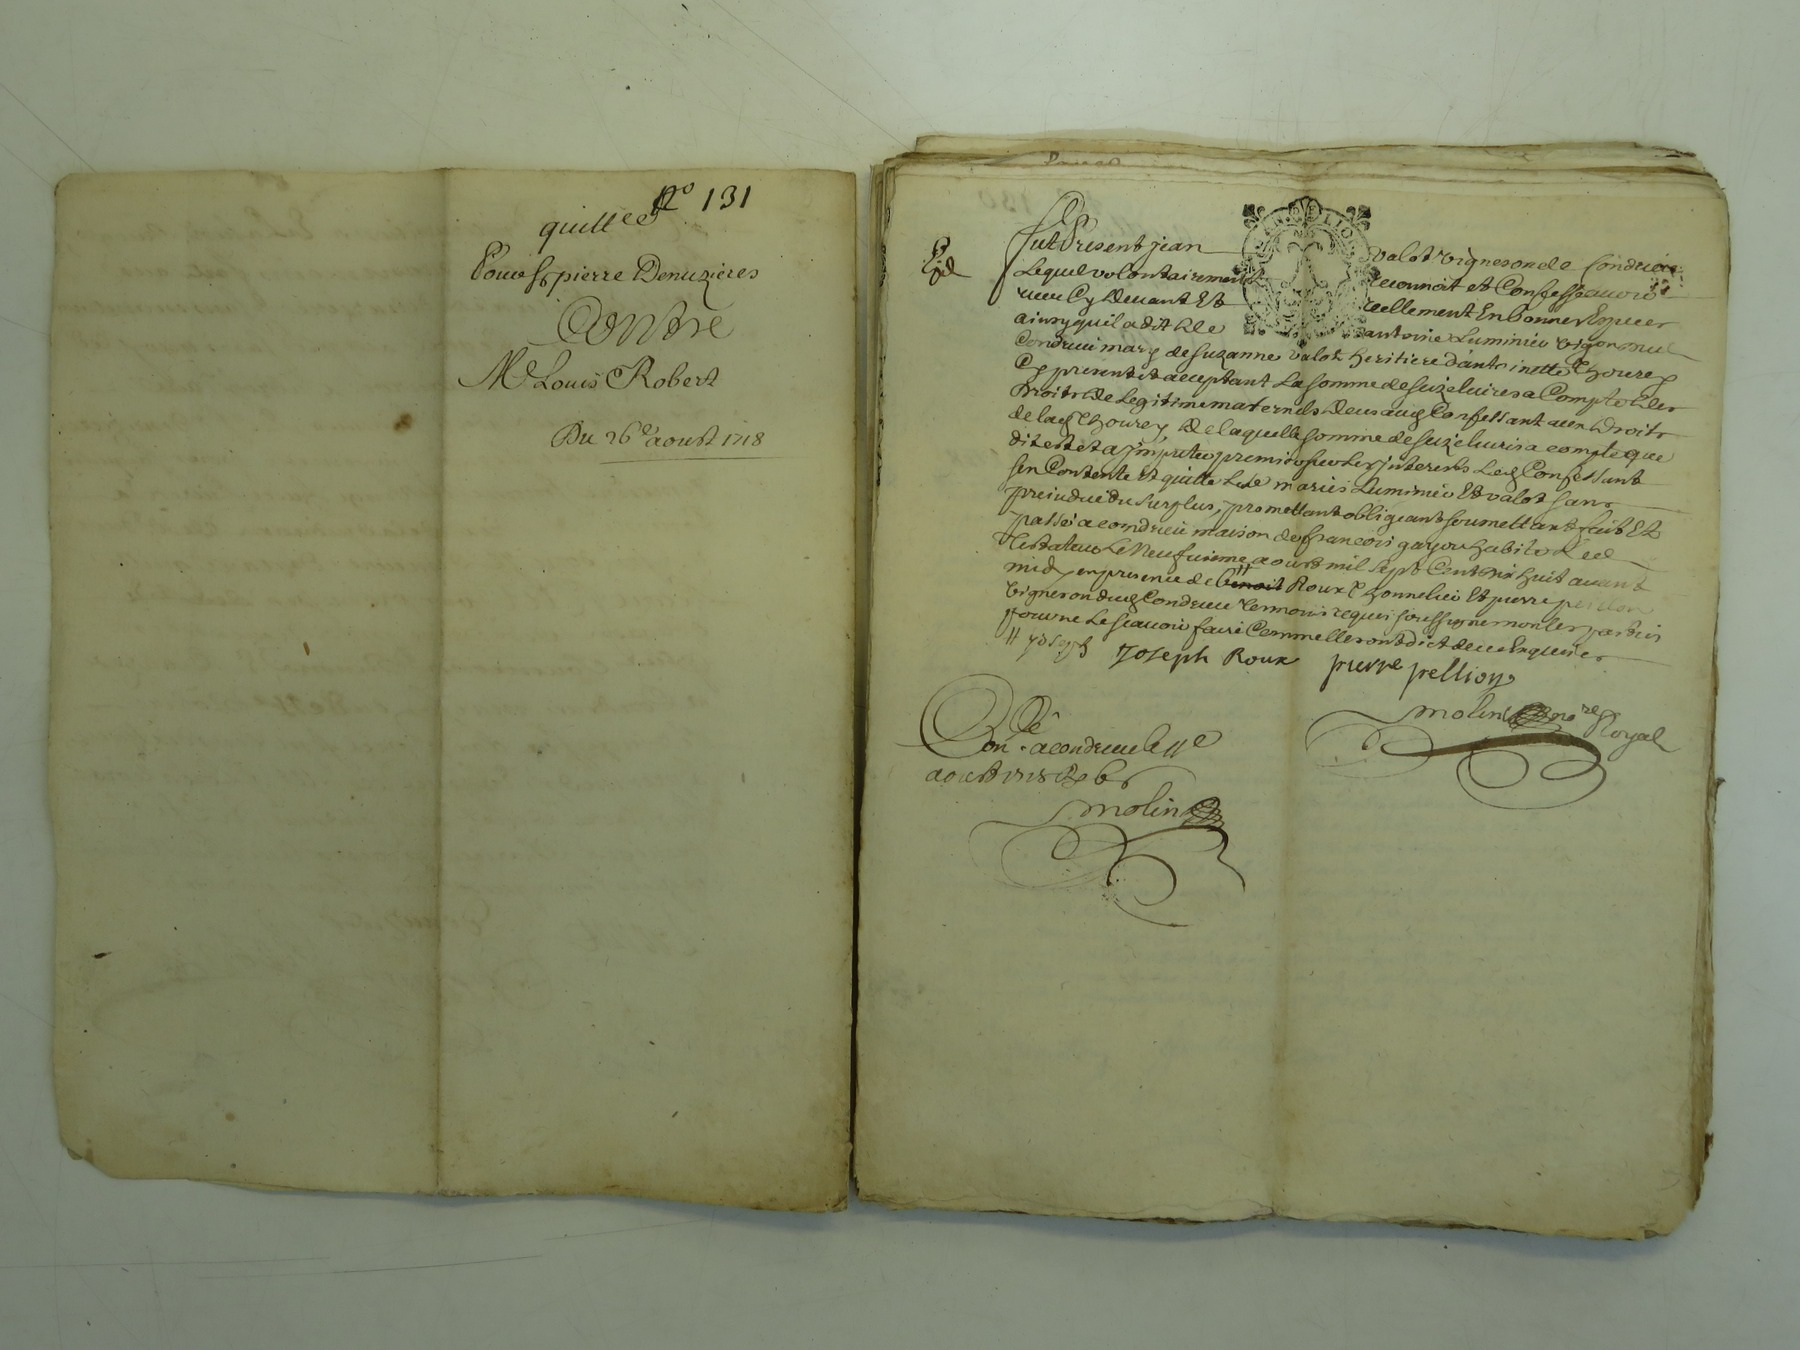 N° 131
quittee
Pour Sr pierre Denuzières
Contre
Me Louis Robert
Du 26e aoust 1718
Exd
Fut Present jean valot vigneron de Condrieu
Lequel volontairement reconnoit et Confesse avoir
receu Cy Devant Et reellement En bonnes Especes
ainsy quil a dit de antoine Luminier vigneron de
Condrieu mary de Suzanne valot heritiere d'antoinette Thourey
Cy present et aceptant La somme de seize livres a Compte des
droits de Legitime maternels deus aud Confessant aux droits
de lad Thourey, de laquelle somme de seize livres a compte que
dit est et a jmputer premier sur Les jnterests Led Confessant
sen Contente Et quitte Lesd maries Luminier Et valot sans
prejudice du surplus, promettant obligeant soumettant fait Et
passé a condrieu maison de francois gayou habitant
Le Neufvieme aoust mil sept Cent dix huit avant
midy en presence de benoit Roux Thonnelier Et pierre pellion
vigneron dud Condrieu temoins requis soussignes non les parties
pour ne Le scavoir faire Comme elles ont dit de ce Enquises
# joseph Joseph Roux pierre pellion
molin nore Royal
Conlé a condrieu le 11e
aoust 1718 R 6 s
molin